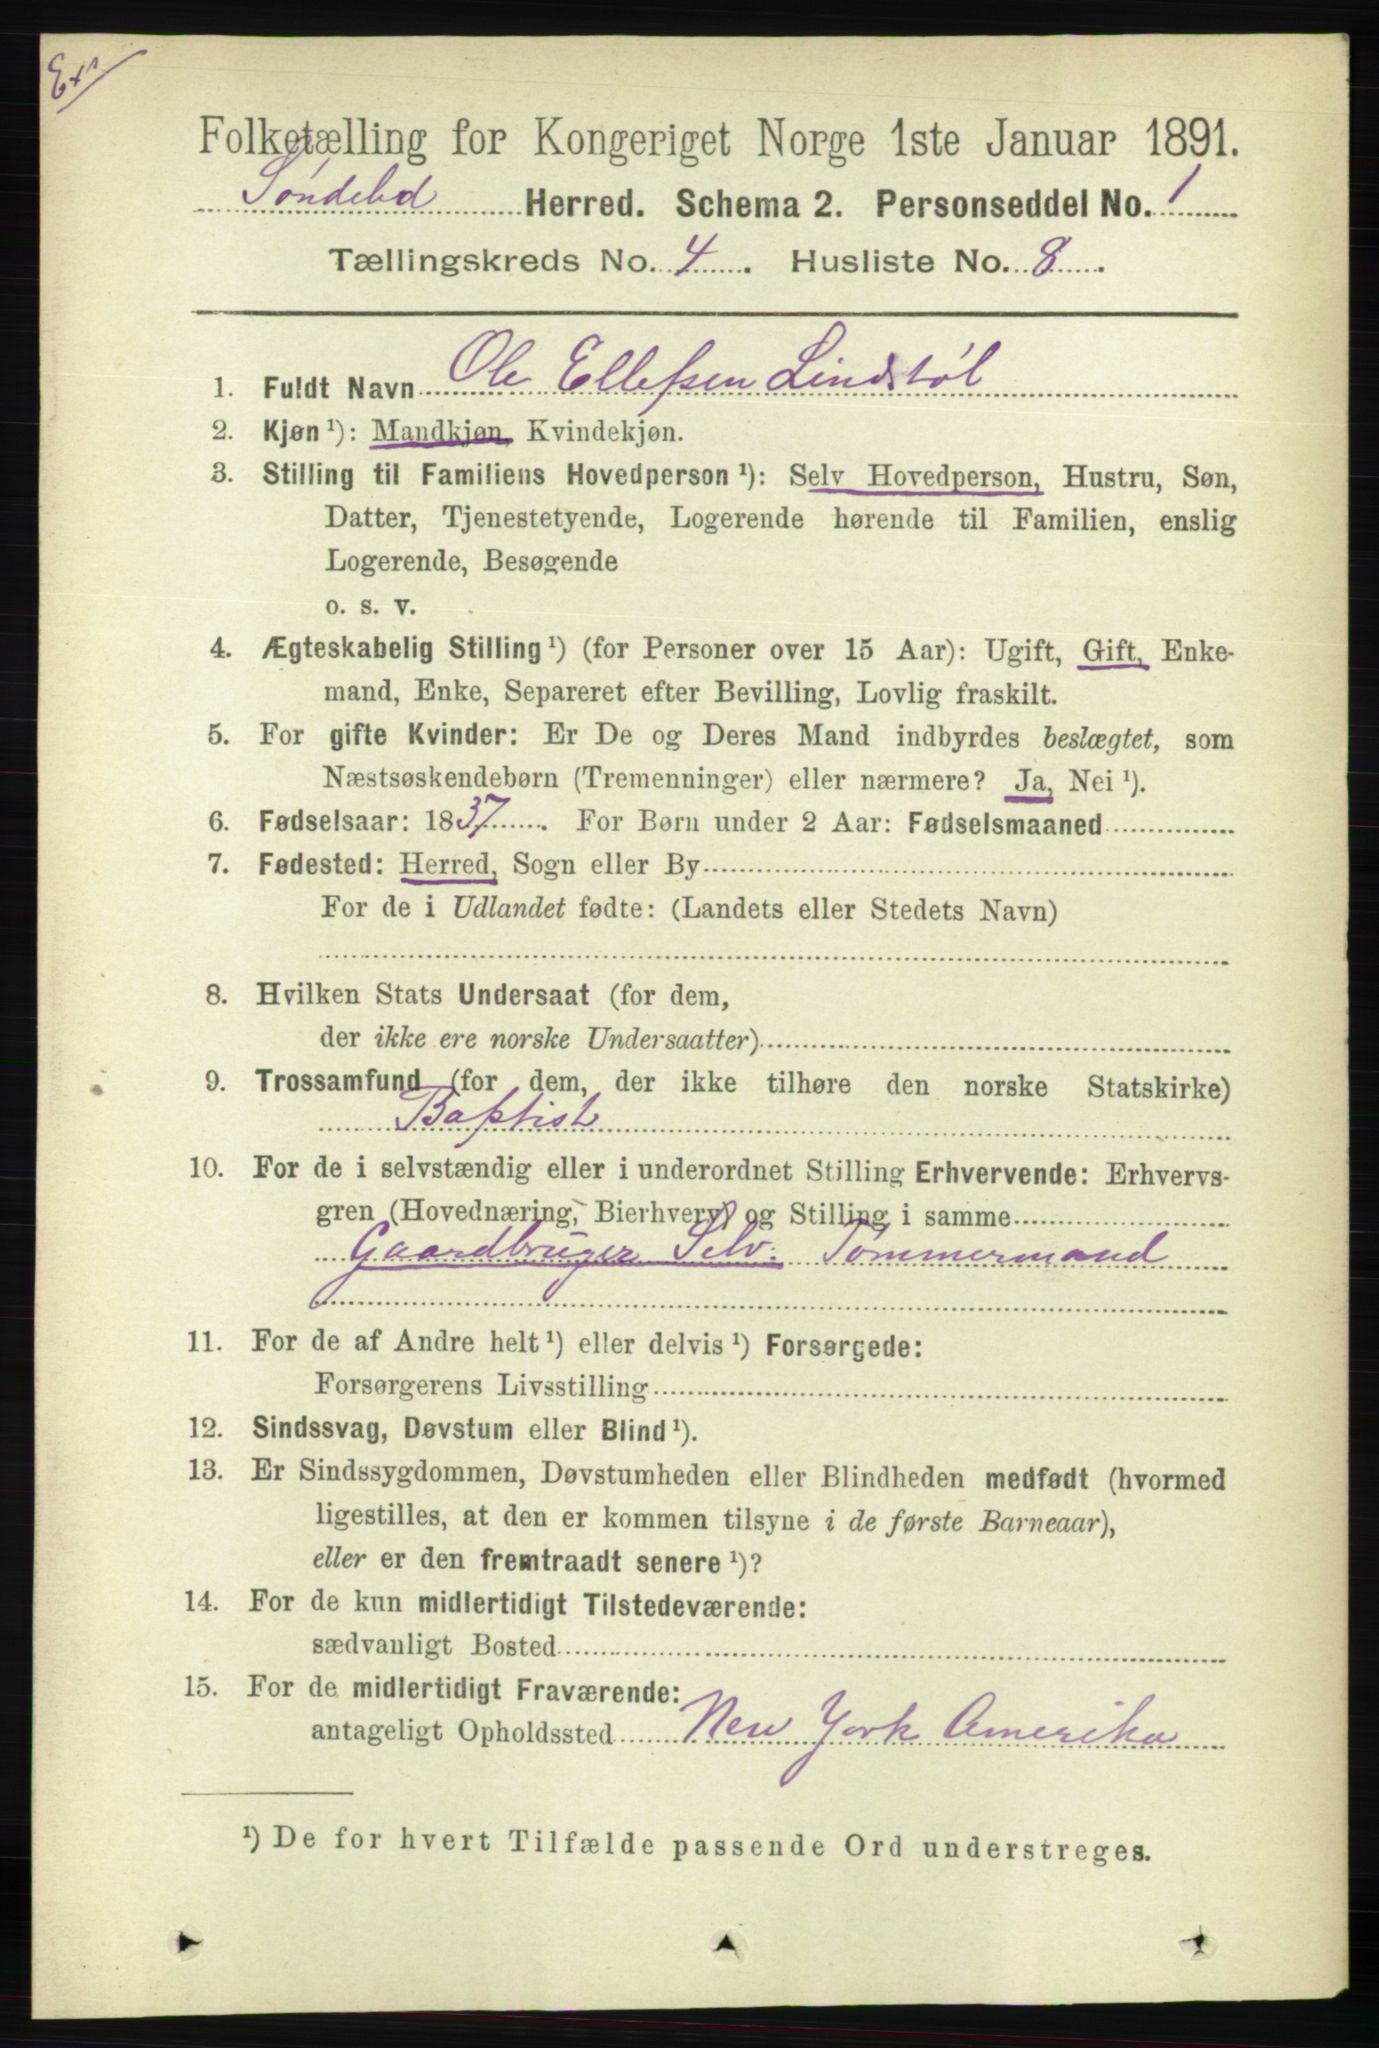 Exr
Folketælling for Kongeriget Norge 1ste Januar 1891.
Søndeled Herred. Schema 2. Personseddel No. 1
Tællingskreds No. 4. Husliste No. 8.
1. Fuldt Navn Ole Ellefsen Lindstøl
2. Kjøn ¹): Mandkjøn, Kvindekjøn.
3. Stilling til Familiens Hovedperson ¹): Selv Hovedperson, Hustru, Søn,
Datter, Tjenestetyende, Logerende hørende til Familien, enslig
Logerende, Besøgende
o. s. v.
4. Ægteskabelig Stilling ¹) (for Personer over 15 Aar): Ugift, Gift, Enke-
mand, Enke, Separeret efter Bevilling, Lovlig fraskilt.
5. For gifte Kvinder: Er De og Deres Mand indbyrdes beslægtet, som
Næstsøskendebørn (Tremenninger) eller nærmere? Ja, Nei ¹).
6. Fødselsaar: 1837. For Børn under 2 Aar: Fødselsmaaned
7. Fødested: Herred, Sogn eller By
For de i Udlandet fødte: (Landets eller Stedets Navn)
8. Hvilken Stats Undersaat (for dem,
der ikke ere norske Undersaatter)
9. Trossamfund (for dem, der ikke tilhøre den norske Statskirke)
Baptist
10. For de i selvstændig eller i underordnet Stilling Erhvervende: Erhvervs-
gren (Hovednæring, Bierhverv) og Stilling i samme
Gaardbruger Selv. Tømmermand
11. For de af Andre helt ¹) eller delvis ¹) Forsørgede:
Forsørgerens Livsstilling
12. Sindssvag, Døvstum eller Blind ¹).
13. Er Sindssygdommen, Døvstumheden eller Blindheden medfødt (hvormed
ligestilles, at den er kommen tilsyne i de første Barneaar),
eller er den fremtraadt senere ¹)?
14. For de kun midlertidigt Tilstedeværende:
sædvanligt Bosted
15. For de midlertidigt Fraværende:
antageligt Opholdssted New York Amerika
¹) De for hvert Tilfælde passende Ord understreges.